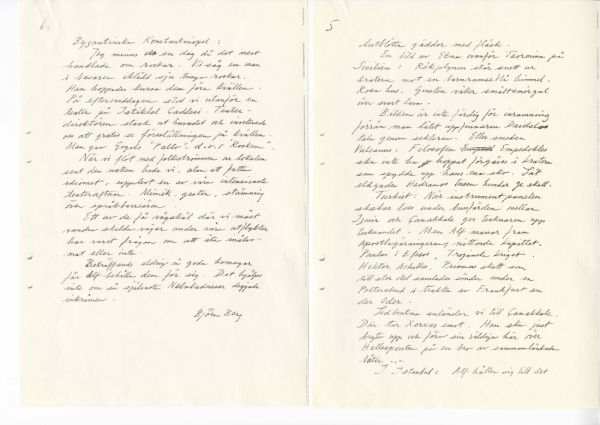 6.
Byzantinska Konstantinopel:
Jag minns en dag då det mest
handlade om rockar. Vi såg en man
i basaren iklädd sju tunga rockar.
Han hoppades kursa dem före kvällen.
På eftermiddagen stod vi utanför en
teater på Istiklal Caddesi. Teater-
direktören stack ut huvudet och inviterade
oss att gratis se föreställningen på kvällen.
Man gav Gogols "Palto", d.v.s "Rocken".
När vi flöt med folkströmmen ur lokalen
sent den natten hade vi, utan att fatta
idiomet, upplevt en av våra intensivaste
teateraftnar. Mimik, gester, stämning
över språkbarriären.
Ett av de få vägskäl där vi måst
vandra skilda vägar under våra utflykter
har varit frågan om att äta inälvs-
mat eller inte.
Beträffande aldrig så goda komagar
får Alf behålla den för sig. Det hjälper
inte om än självaste Nebukadnessar doppade
inkråmen.
Björn Berg
5
lutblötta gäddor med fläsk.
En bild av Etna ovanför Taormina på
Sicilien: Rökplymen står snett ur
kratern mot en barnramsblå himmel.
Rosa hus. Ginsten väller smältsmörgul
över svart lava.
Bilden är inte färdig för inramning
förrän man låtit uppfinnaren Daidalos
tala genom seklerna. Eller smeden
Vulcanus. Filosofen Empedokles
ska inte ha hoppat förgäves i kratern
som spydde upp hans ena sko. Låt
eldguden Hadranos tusen hundar ge skall.
Turkiet: När instrumentpanelen
skakar loss under bussfärden mellan
Izmir och Canakkale ger tecknaren upp
tecknandet. Men Alf manar fram
Apostlagärningarnas nittonde kapitlet.
Paulus i Efesos. Trojanska kriget.
Hektor Achilles. Priamos skatt som
till stor del samlades under en
i trakten av Frankfurt an
der Oder.
Ledbrutna anländer vi till Canakkale.
Där tar Xerxes emot. Han ska just
bryta upp och föra sin väldiga här över
Hellesponten på en bro av sammanlänkade
båtar ...
I Istanbul: Alf håller sig till det